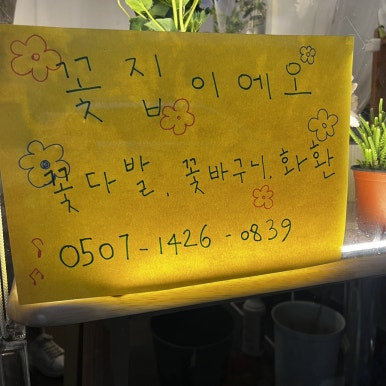 꽃집이에오
꽃다발, 꽃바구니, 화환
0507-1426-0839